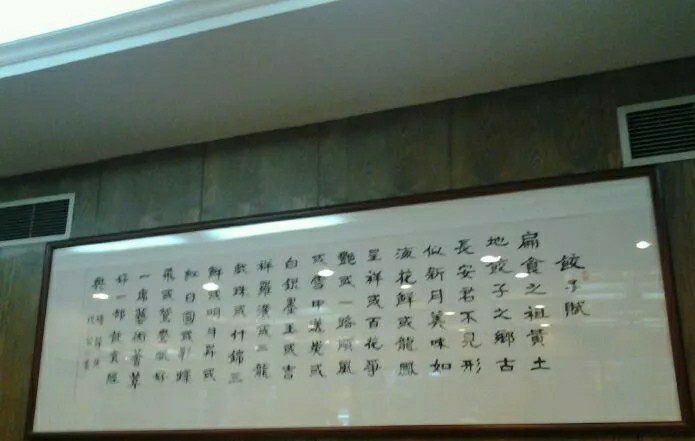 餃子賦
扁食之祖黄土
地餃子之鄉古
長安君不見形
似新月美味如
海花鮮或龍鳳
呈祥或百花爭
艷或一路順風
或雪中送炭或
白銀墨玉或吉
祥羅漢或二龍
戲珠或什錦三
鮮或明月昇或
紅日圓或彩蝶
飛或鴛鴦
一席藝術薈萃
好一部飲食經
典